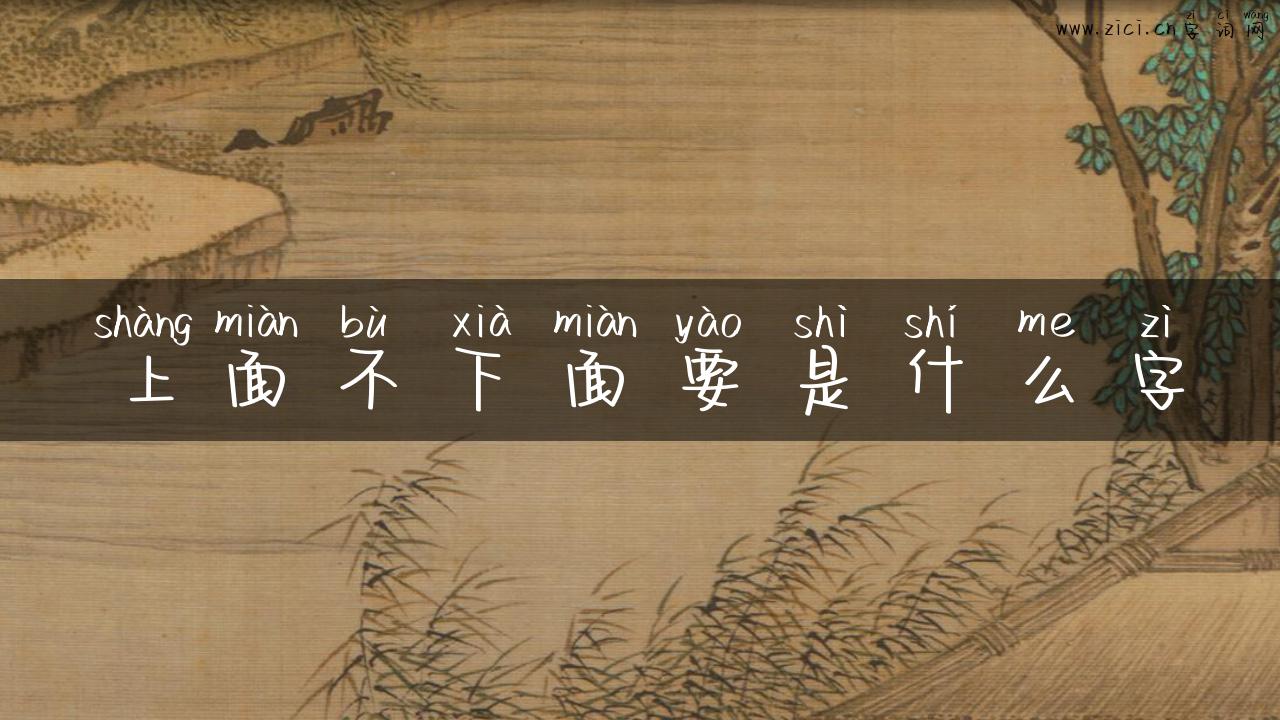 zì cí wǎng
www.zici.cn字词网
shàng miàn bù xià miàn yào shì shí me zì
上面不下面要是什么字